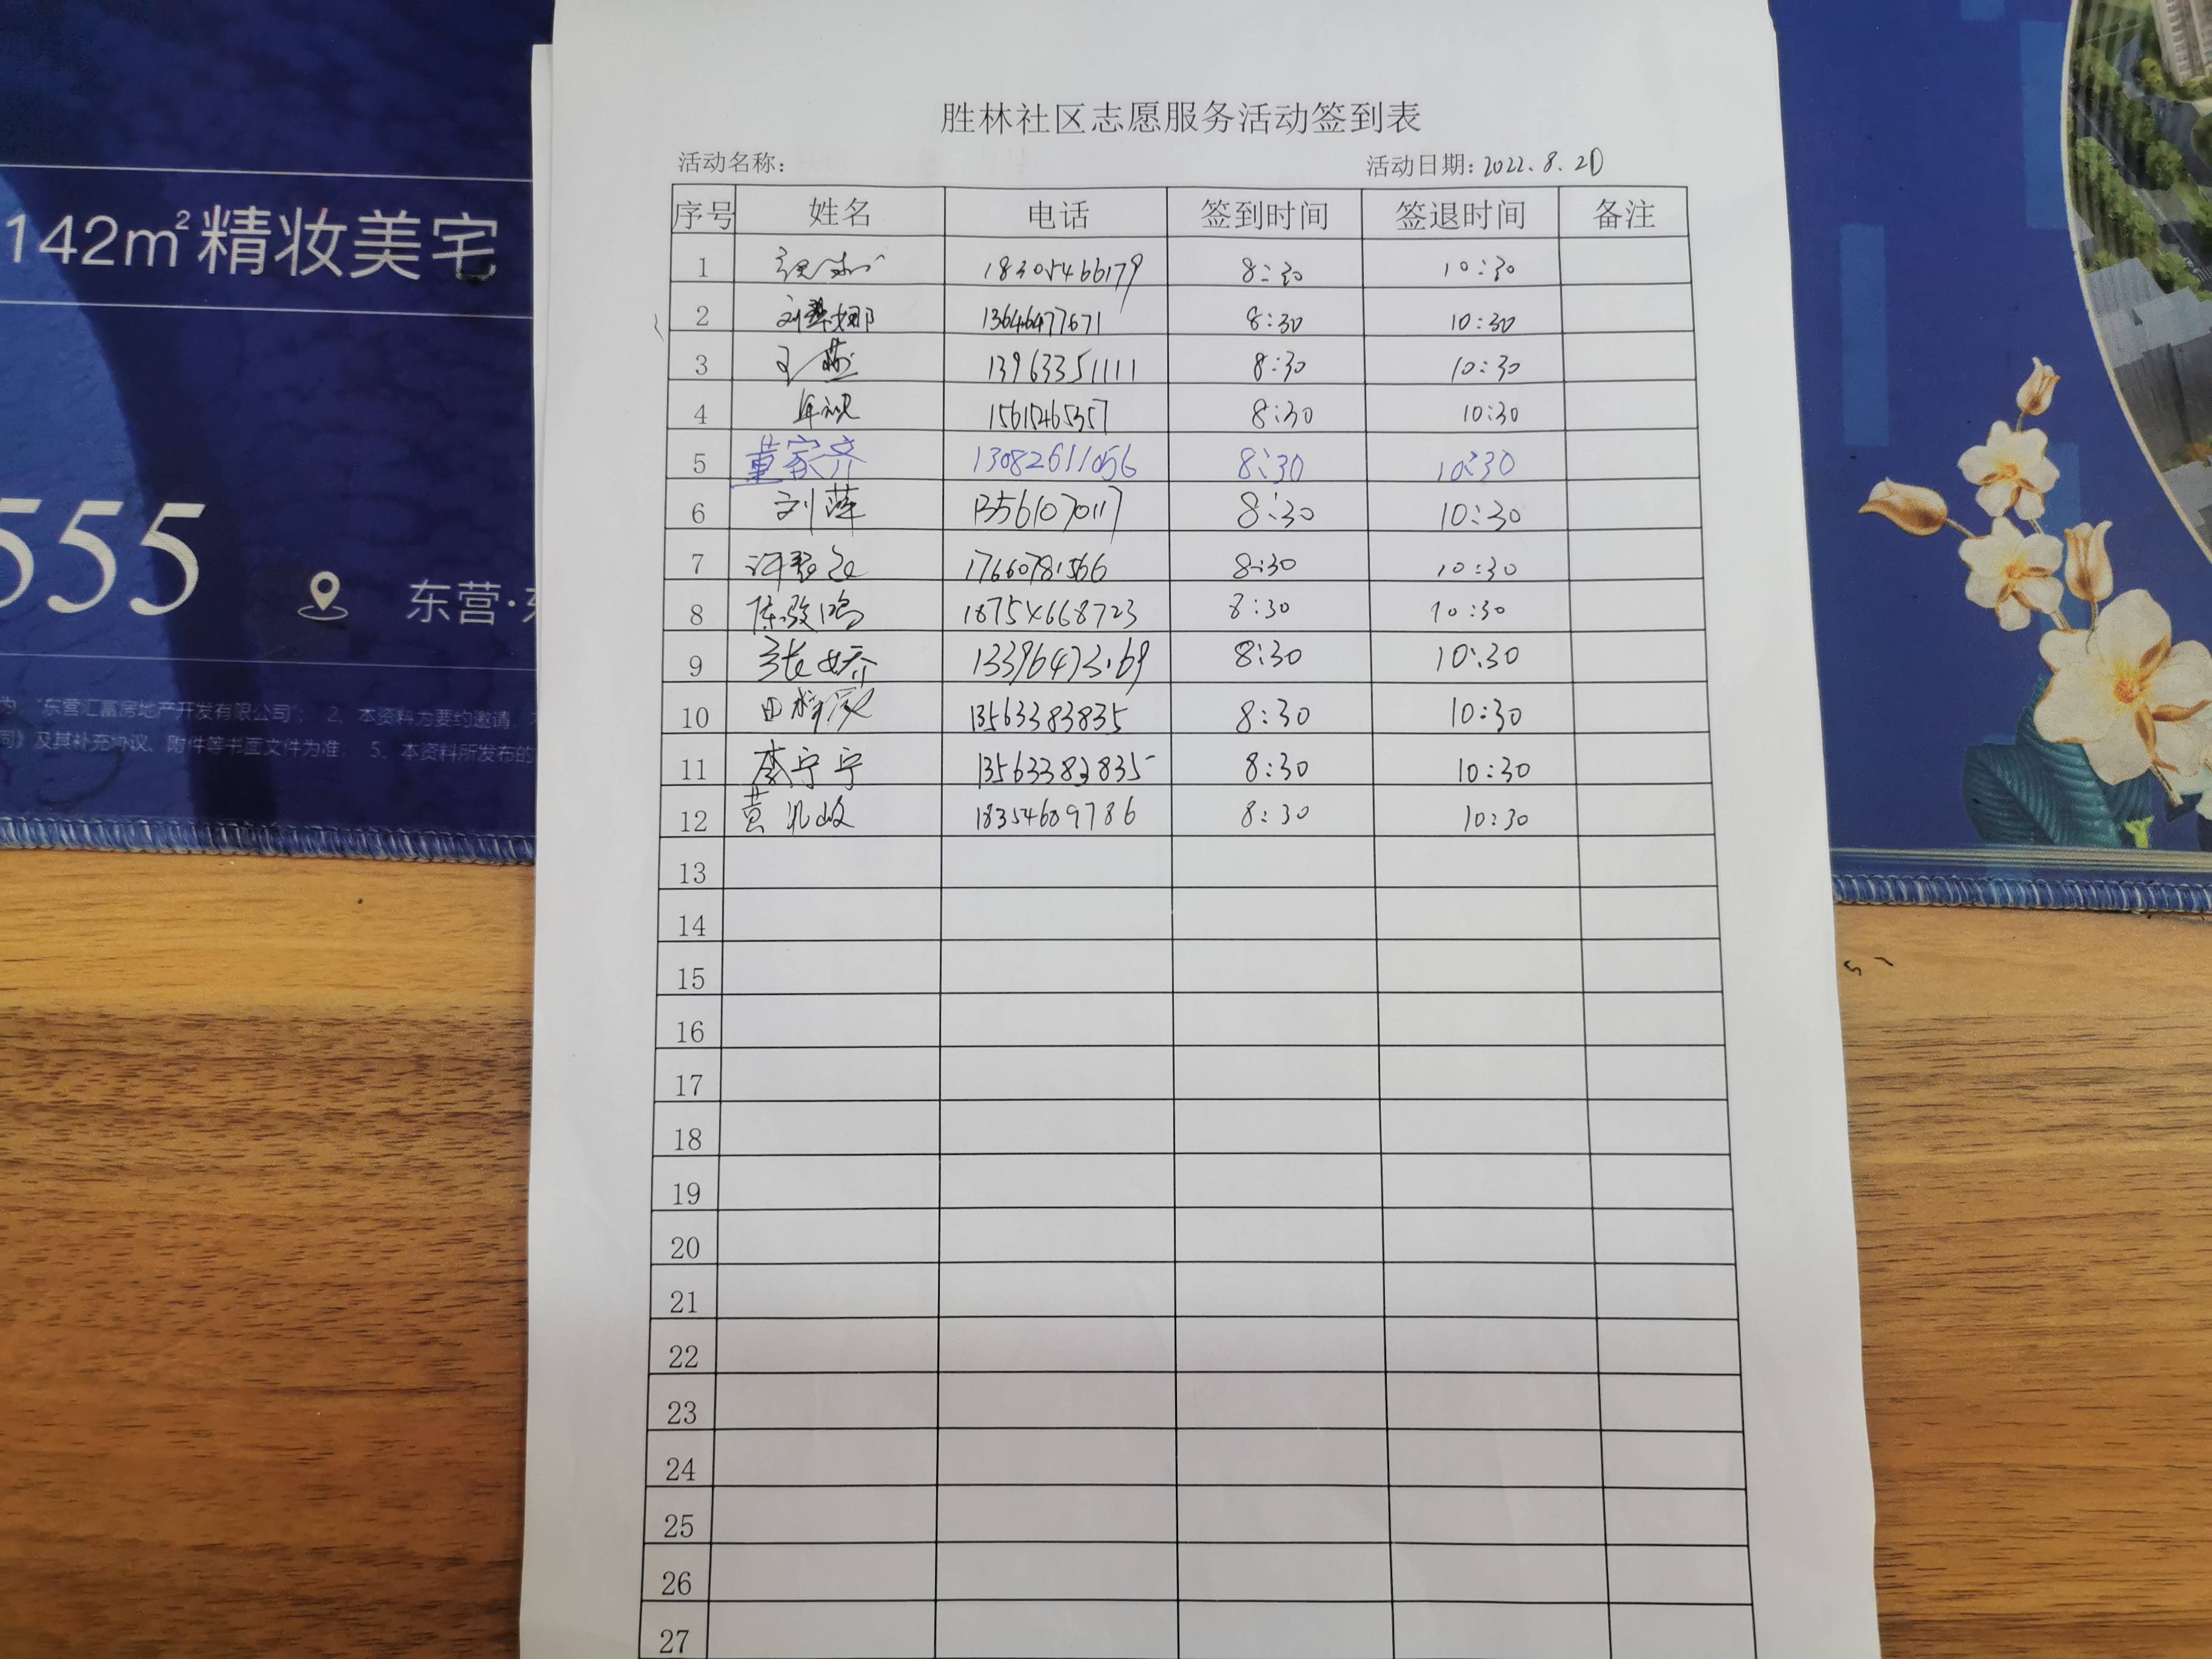 胜林社区志愿服务活动签到表
活动名称: 活动日期: 2022.8.20
序号 姓名 电话 签到时间 签退时间 备注
1 18305466179 8:30 10:30
2 刘 娜 13646477671 8:30 10:30
3 王 13963351111 8:30 10:30
4 8:30 10:30
5 董家齐 13082611056 8:30 10:30
6 刘萍 13561070117 8:30 10:30
7 17660781566 8:30 10:30
8 18754668723 8:30 10:30
9 张娇 8:30 10:30
10 田 13563383835 8:30 10:30
11 李宁宁 13563383835 8:30 10:30
12 黄 18354609786 8:30 10:30
13
14
15
16
17
18
19
20
21
22
23
24
25
26
27
142m²精妆美宅
555
东营·
“东营汇富房地产开发有限公司”; 2、本资料为要约邀请,
及其补充协议、附件等书面文件为准; 5、本资料所发布的